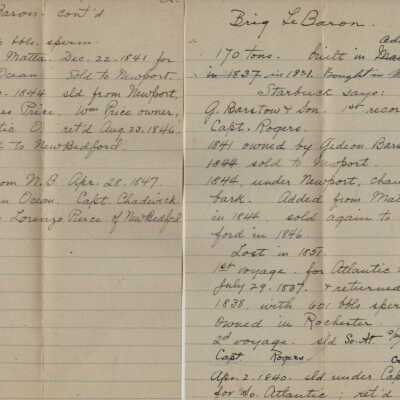 Baron - cont'd
bbls. sperm.
Matta. Dec. 22. 1841 for
Ocean. Sold to Newport.
1844 sld from Newport,
Price. Wm Price owner,
tic O. ret'd Aug 23. 1846.
to New Bedford.
om N.B. Apr. 28. 1847.
n Ocean. Capt. Chadwick.
Lorenzo Pierce of New Bedford
Brig Le Baron.
170 tons. built in
in 1837. Bought in
Starbuck says:
G. Barstow & Son. 1st recor
Capt. Rogers.
1841 owned by Gideon Bars
1844 sold to Newport.
1844, under Newport, chan
bark. Added from Mat
in 1844. sold again to
ford in 1846.
Lost in 1851.
1st voyage. for Atlantic
July 29. 1837. & returned
1838, with 601 bbls sper
Owned in Rochester.
2nd voyage. s'ld So. At
Capt. Rogers.
Apr. 2. 1840. sld under Cap
for So. Atlantic; ret'd